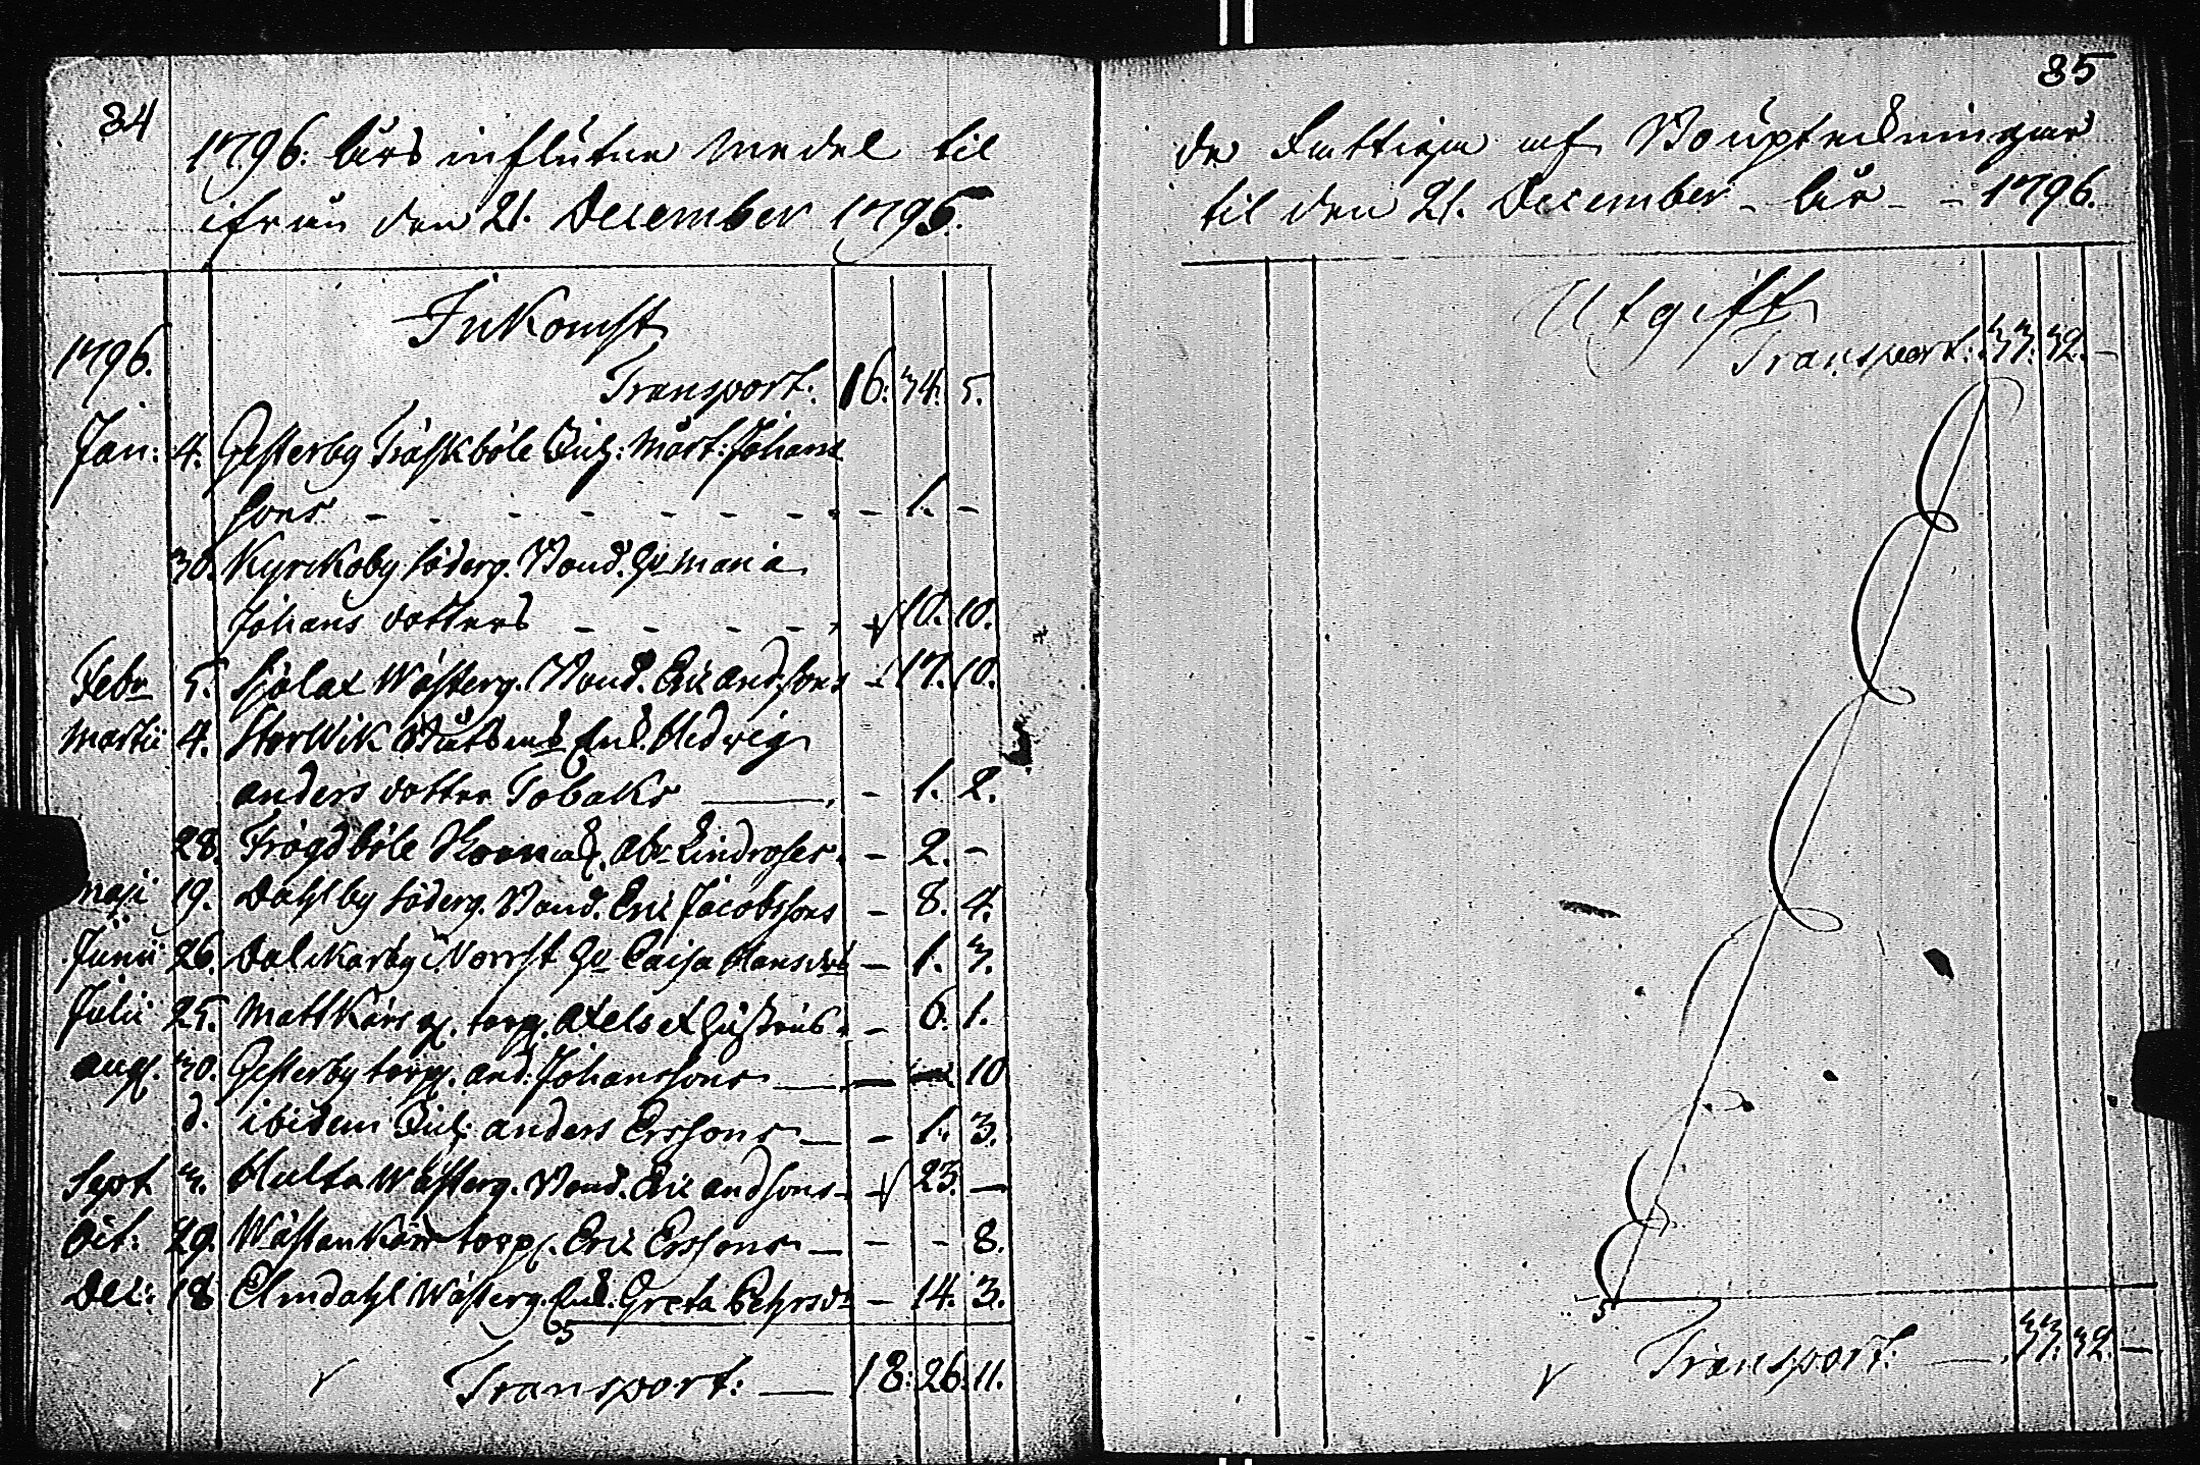 34
1796: års influtne medel til
ifrån den 21. December 1795.
Inkomst
1796.
Transport: 16. 34. 5.
Jan: 4. Gesterby Träskböle Inh: Mårt: Johans
sons - 1. -
30. Kyrckoby söderg. Bond. Hu Maria
Johans dotters - 10. 10.
Febr 5. Sjölax Wästerg. Bond. Eric And:sons - 17. 10.
Martii 4. StorWik Enk. Hedwig
Anders dotter Tobaks - 1. 2.
28. Frögdböle Abr Lindroses - 2. -
Maji 19. Dahlby söderg. Bond. Eric Jacobssons - 8. 4.
Junii 26. Dalkarby Norrst Hu Caisa Hansdrs - 1. 3.
Julii 25. Mattkärr torp. Axels et Hustrus - 6. 1.
Aug. 30. Gesterby torp. And: Johanssons - - 10
d. ibidem Inh: Anders Erssons - 1. 3.
Sept. 3. Hulta Wästerg. Bond. Eric Andsons - 23. -
Oct: 29. Wästankärr torp. Eric Erssons - - 8.
Dec: 18 Elmdahl Wästerg. Enk: Greta Pehrsdr - 14. 3.
5
Transport: 18. 26. 11.
35
de Fattiga af Bouptekningar
til den 21. December - år - - 1796.
Utgift
Transport: 33. 32. -
5
Transport: 33. 32. -